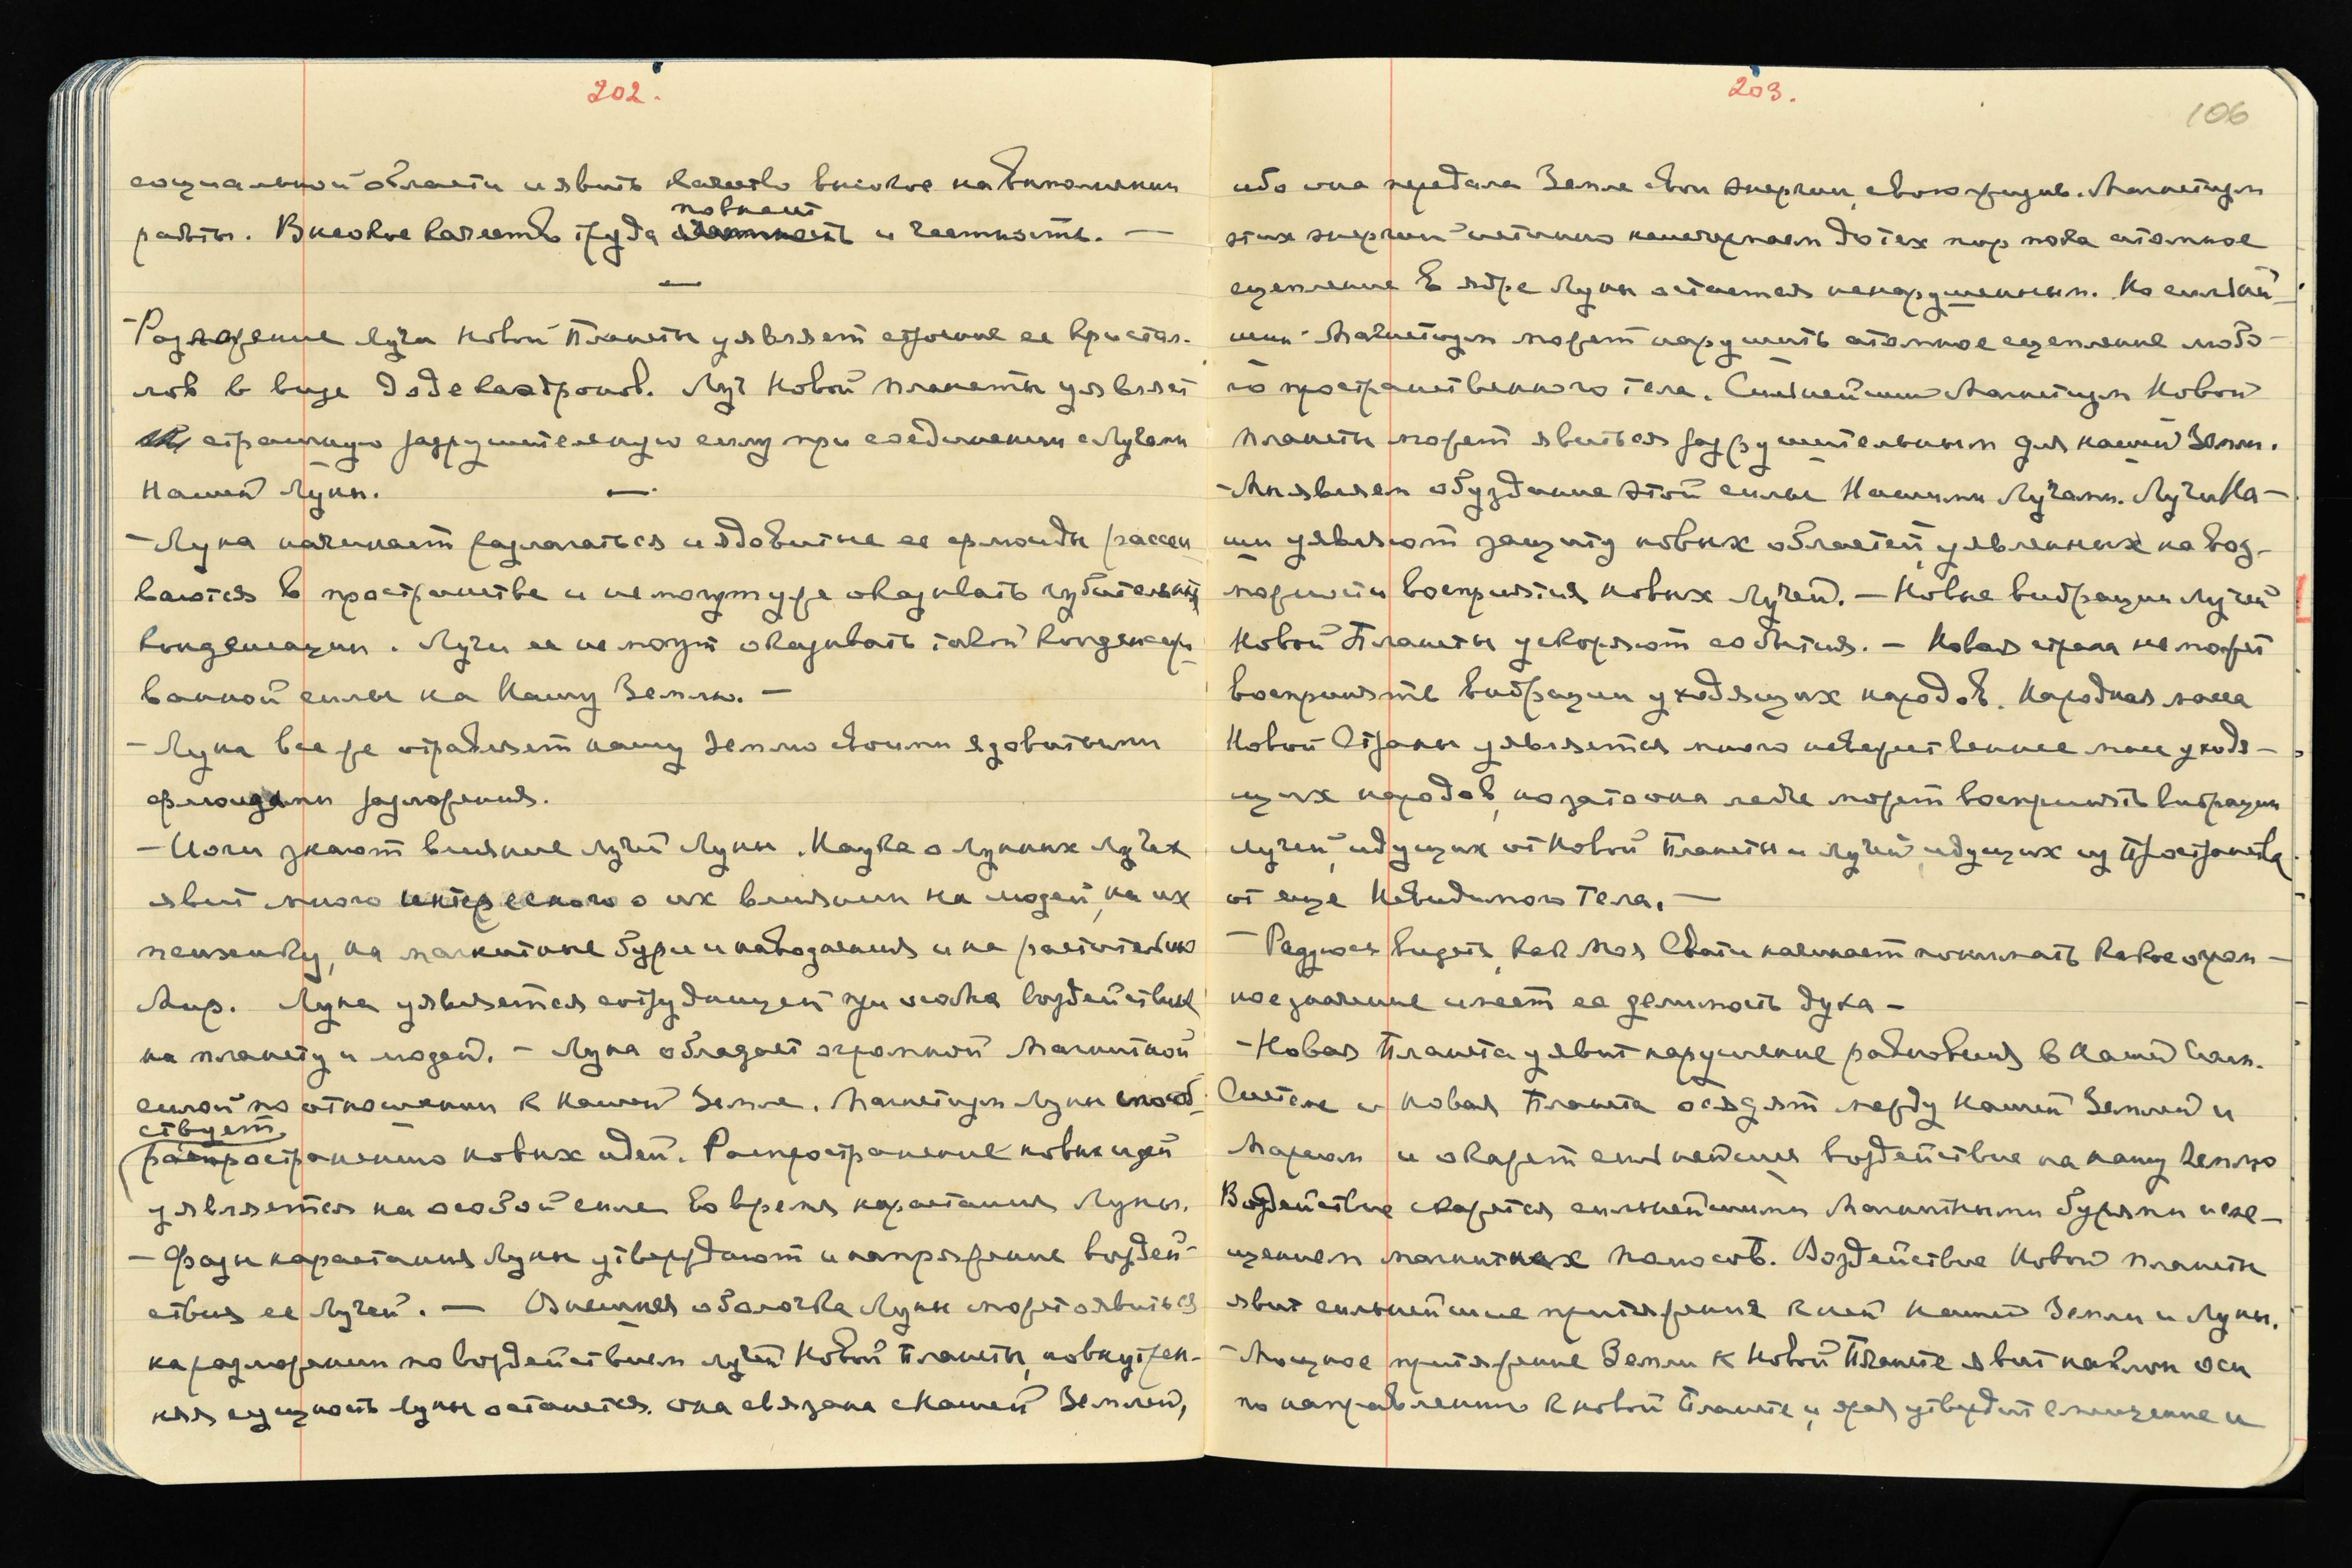 202.
социальной области и явить качество высокое на выполнении
повысит
работы. Высокое качество труда и честность. —
—
-Разложение луча Новой Планеты уявляет строение ее кристал-
лов в виде додекаэдронов. Луч Новой планеты уявляет
страшную разрушительную силу при соединении с Лучами
Нашей Луны. —
-Луна начинает разлагаться и ядовитые ее флюиды рассеи
ваются в пространстве и не могут уже оказывать губительных
конденсации. Лучи ее не могут оказывать такой конденсиро
ванной силы на Нашу Землю. —
-Луна все же отравляет нашу Землю своими ядовитыми
флюидами разложения.
-Йоги знают влияние лучей Луны. Наука о лунных лучах
явит много интересного о их влиянии на людей, на их
психику, на магнитные бури и наводнения и на растительн
Мир. Луна уявляется сотрудницей при воздействии
на планету и людей. - Луна обладает огромной Магнитной
силой по отношении к Нашей Земле. Магнетизм Луны способ-
ствует
распространению новых идей. Распространение новых идей
уявляется на особой силе во время нарастания Луны.
- Фазы нарастания Луны утверждают и напряжение воздей-
ствия ее Лучей. — Внешняя оболочка Луны может явиться
на разложении по воздействием лучей Новой Планеты, но внутрен-
няя сущность Луны останется. она связана с Нашей Землей,
203.
106
ибо она передала Земле свои энергии, свою жизнь. Магнетизм
этих энергий истинно неисчерпаем до тех пор пока атомное
сцепление в ядре Луны остается ненарушенным. Но сильней-
ший Магнетизм может нарушить атомное сцепление любо-
го пространственного тела. Сильнейший Магнетизм Новой
планеты может явиться разрушительным для нашей Земли.
-Мы являем обуздание этой силы Нашими Лучами. Лучи На-
ши уявляют защиту новых областей, уявленных на воз-
можности восприятия новых Лучей. - Новые вибрации Лучей
Новой Планеты ускоряют события. - Новая страна не может
воспринять вибрации уходящих народов. Народная масса
Новой Страны уявляется много невежественнее масс уходя-
щих народов, но зато она легче может воспринять вибрации
лучей, идущих от Новой Планеты и лучей, идущих из Пространства
от еще Невидимого Тела. —
-Радуюсь видеть, как Моя Свати начинает понимать какое огром-
ное значение имеет ее делимость духа —
-Новая Планета уявит нарушение равновесия в Нашей Солн.
Системе и Новая Планета осядет между Нашей Землей и
Марсом и окажет сильнейшее воздействие на нашу Землю
Воздействие скажется сильнейшими Магнитными бурями и сме-
щением магнитных полюсов. Воздействие Новой планеты
явит сильнейшее притяжение к ней Нашей Земли и Луны.
-Мощное притяжение Земли к Новой Планете явит наклон оси
по направлению к новой Планете и, яро утвердит смещение и